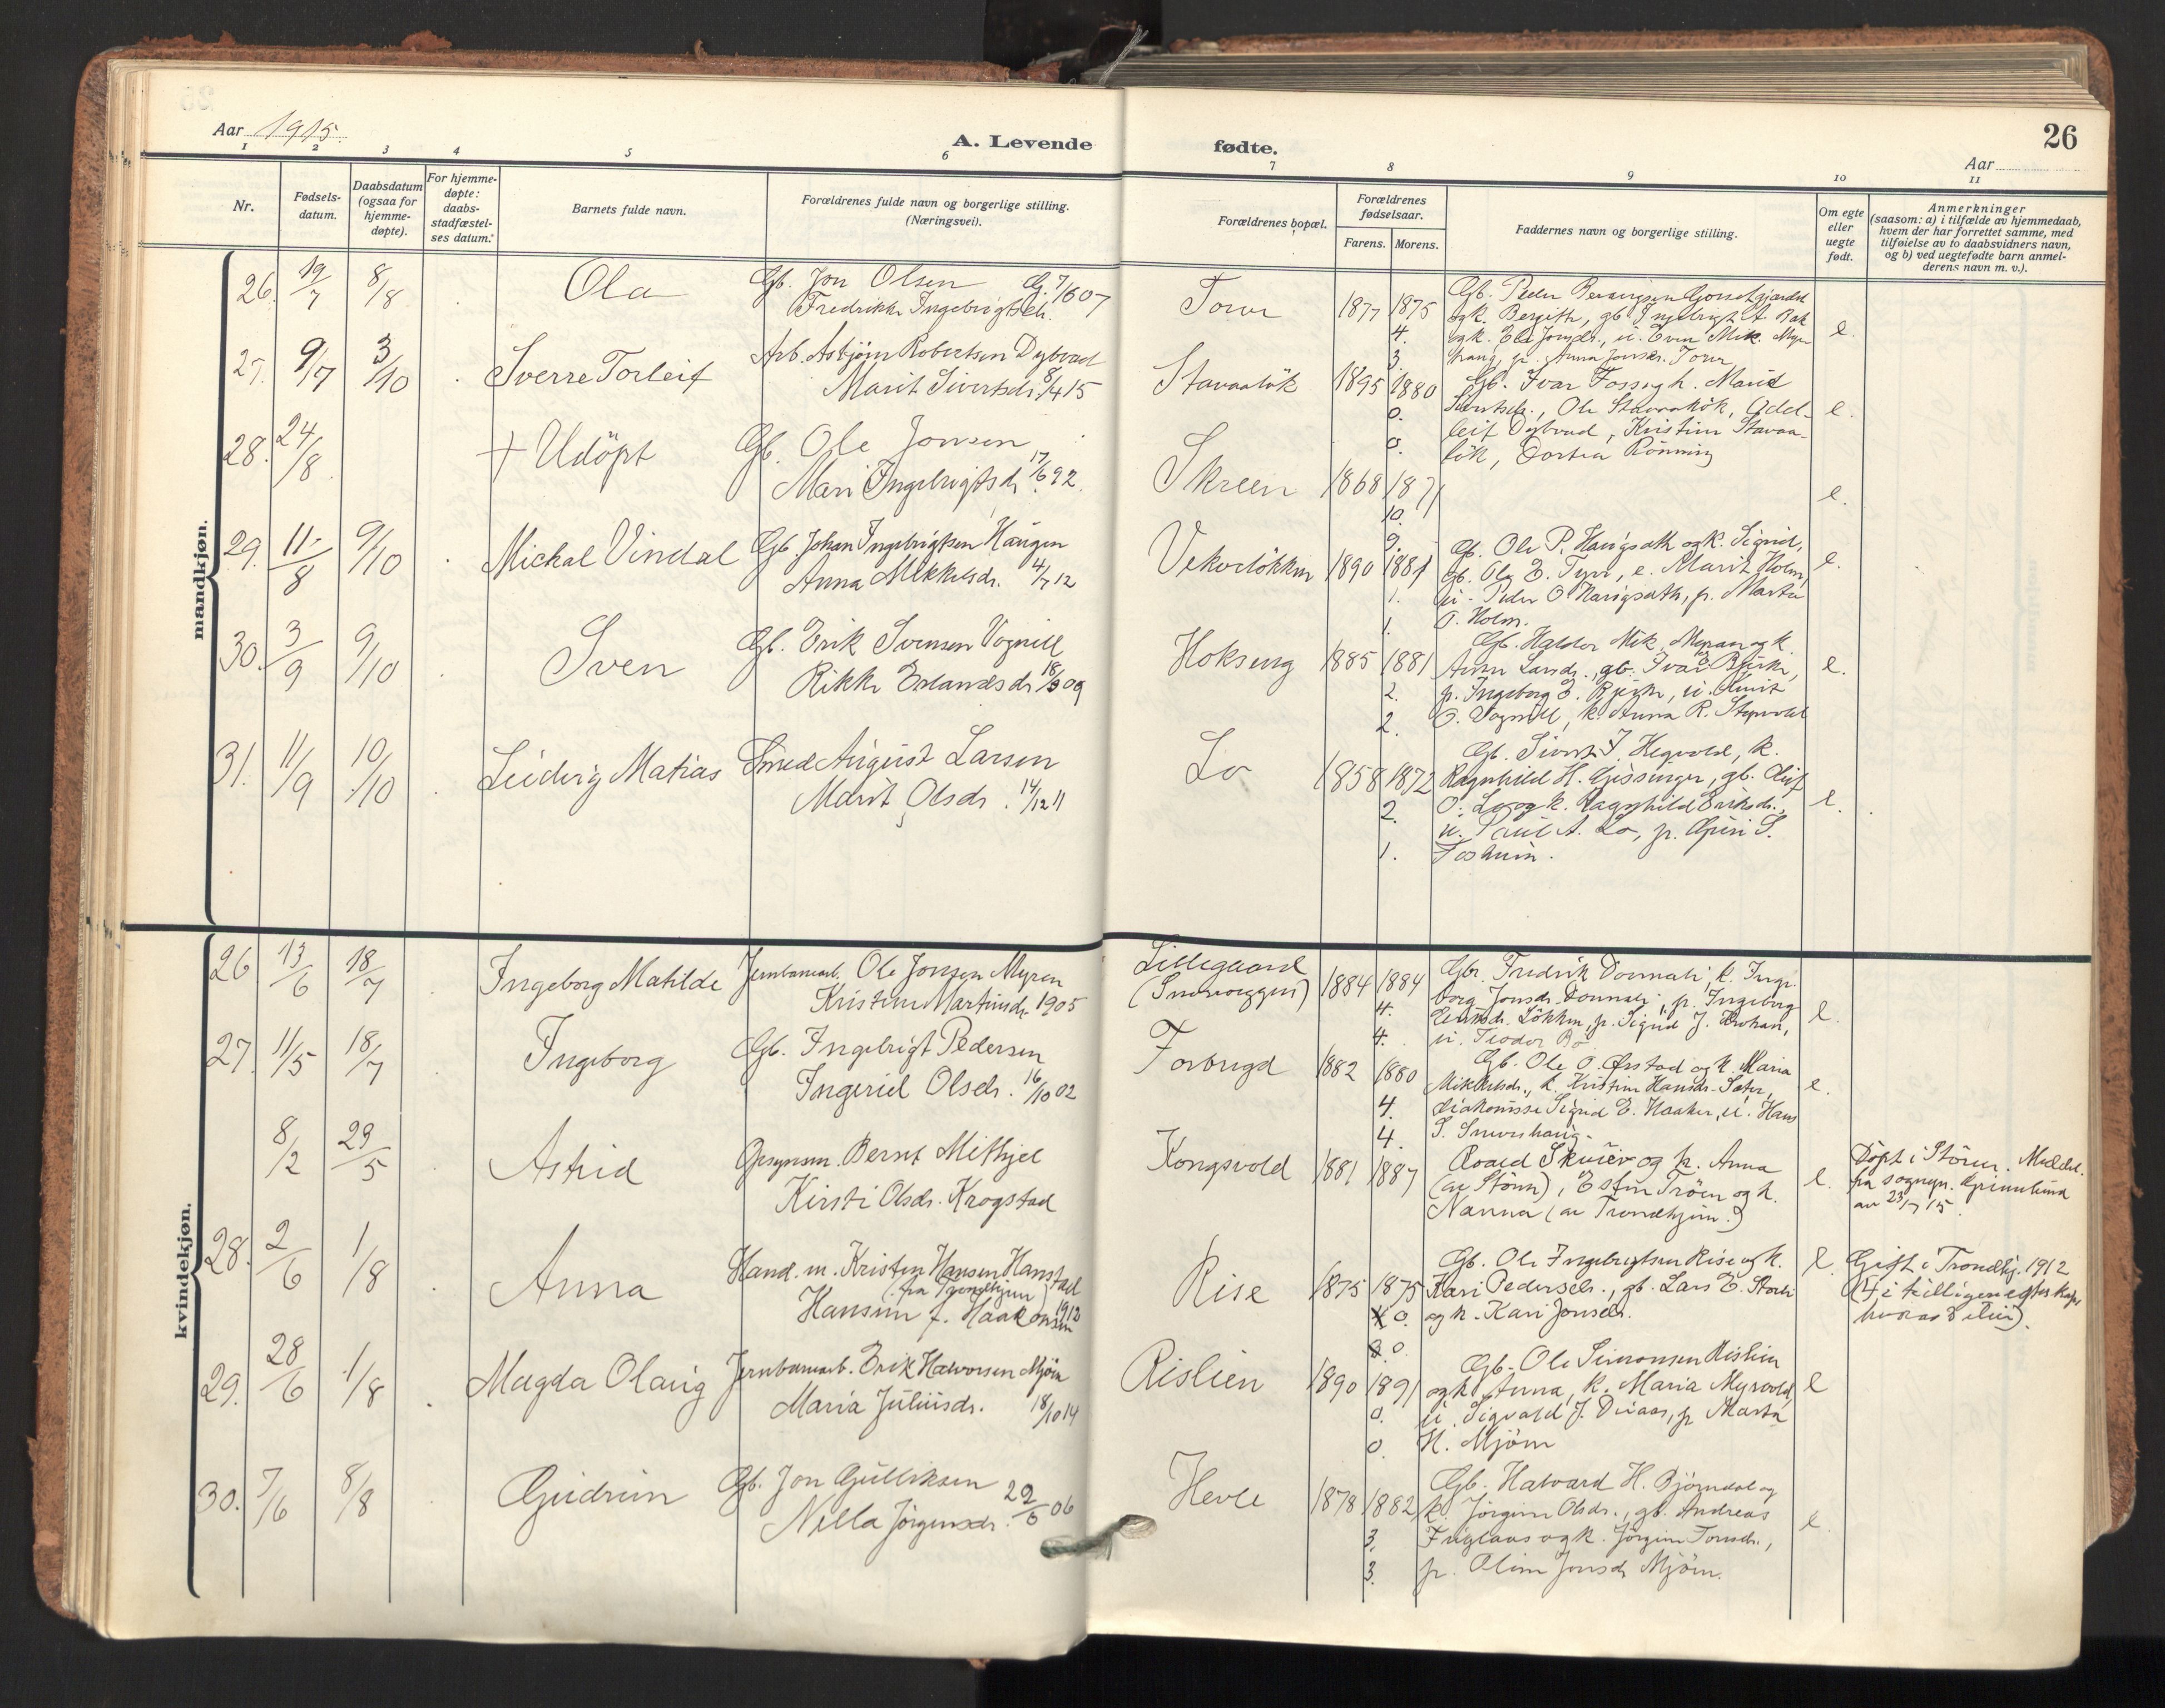 Aar 1915.
A. Levende fødte.
26
Aar
1 2 3 4 5 6 7 8 9 10 11
Nr.
Fødsels-
datum.
Daabsdatum
(ogsaa for
hjemme-
døpte).
For hjemme-
døpte:
daabs-
stadfæstel-
ses datum.
Barnets fulde navn.
Forældrenes fulde navn og borgerlige stilling.
(Næringsvei).
Forældrenes bopæl.
Forældrenes
fødselsaar.
Farens. Morens.
Faddernes navn og borgerlige stilling.
Om egte
eller
uegte
født.
Anmerkninger
(saasom: a) i tilfælde av hjemmedaab,
hvem der har forrettet samme, med
tilføielse av to daabsvidners navn,
og b) ved uegtefødte barn anmel-
derens navn m. v.).
mandkjøn.
26. 19/7 8/8 Ola
Gb. Jon Olsen
Fredrikke Ingebrigtsdr.
1877 1875
4.
3.
e.
27. 9/7 3/10 Sverre Torleif
Arb. Asbjørn Robertsen Dybvad
Marit Sivertsdr. 8/4 15
Stavaaløk 1895 1880
0.
0.
Gb. Ivar Foss og h. Marit
Sivertsdr., Ole Stavaaløk,
Dybvad, Kristine Stavaa-
løk, Dortea Rönning
e.
28. 24/8 † Udöpt
Gb. Ole Jonsen
Mari Ingebrigtsdr. 17/6 92.
Skreen 1868 1871
10.
9.
e.
29. 11/8 9/10 Michal Vindal
Gb. Johan Ingebrigtsen Haugen
Anna Mikkelsdr. 4/7 12
Vekveløkken 1890 1881
1.
1.
Gb. Ole P. Haugsæth og k. Sigrid,
gb. Ole E. Tyri, e. Marit Holm,
u. Peder O. Haugsæth, p. Marta
O. Holm.
e.
30. 3/9 9/10 Sven
Gb. Erik Svensen Vognill
Rikke Erlandsdr. 18/3 09
Hokseng 1885 1881
2.
2.
Gb. Haldor Mik. Myran og k.
Anne Larsdr., gb. Ivar E. Bjerke,
p. Ingeborg E. Bjerke, u.
O. Vognill, k. Anna R.
e.
31. 11/9 10/10 Ludvig Matias
Smed August Larsen
Marit Olsdr. 14/12 11
Lo 1858 1872
2.
1.
Gb. Sivert J. Hegvold, k.
Ragnhild H. Gissinger, gb. Oluf
O. Lo og k. Ragnhild Eriksdr.,
u. Paul A. Lo, p. Guri S.
e.
kvindekjøn.
26 13/6 18/7 Ingeborg Matilde
Jernbanearb. Ole Jonsen Myren
Kristine Martinsdr. 1905
Lillegaard
1884 1884
4.
4.
Gbr. Fredrik Donnali, k. Inge-
borg Jonsdr. Donnali, p. Ingeborg
Løkken, p. Sigrid J.
u. Teodor Bø
e.
27. 11/5 18/7 Ingeborg
Gb. Ingebrigt Pedersen
Ingerid Olsdr. 16/10 02
Forbregd 1882 1880
4.
4.
Gb. Ole O. Ørstad og k. Maria
Mikkelsdr., k. Kristine Hansdr. Sæter,
diakonisse Sigrid E. Haaker, u. Hans
S. Snuvshaug.
e.
8/2 23/5 Astrid
Opsynsm. Bernt Mithjel
Kirsti Olsdr. Krogstad
Kongsvold 1881 1887
Roald og h. Anna
(av Stören), Esten Tröen og h.
Nanna (av Trondhjem.)
e.
Döpt i Stören. Meddel.
fra sognepr. Grimelund
av 23/7 15.
28. 2/6 1/8 Anna
Hand. m. Kristen Hansen Hanstad
(fra Trondhjem)
Hansine f. Haakonsen 1912
Rise 1875 1875
0.
0.
Gb. Ole Ingebrigtsen Rise og k.
Kari Pedersdr., gb. Lars E. Storli
og k. Kari Jonsdr.
e.
Gift i Trondhj. 1912
29. 28/6 1/8 Magda Olaug
Jernbanearb. Erik Halvorsen Mjøen
Maria Juliusdr. 18/10 14
Rislien 1890 1891
0.
0.
Gb. Ole Simonsen Rislien
og k. Anna, k. Maria Myrvold,
u. Sigvald J. Duaas, p. Marta
H. Mjøen
e
30. 7/6 8/8 Gudrun
Gb. Jon Gulliksen
Nilla Jörgensdr. 22/6 06
Hevle 1878 1882
3.
3.
Gb. Halvard H. Bjørndal og
k. Jörgine Olsdr., gb. Andreas
og k. Jörgine Tomsdr.,
p. Oline Jonsdr. Mjøen.
e.